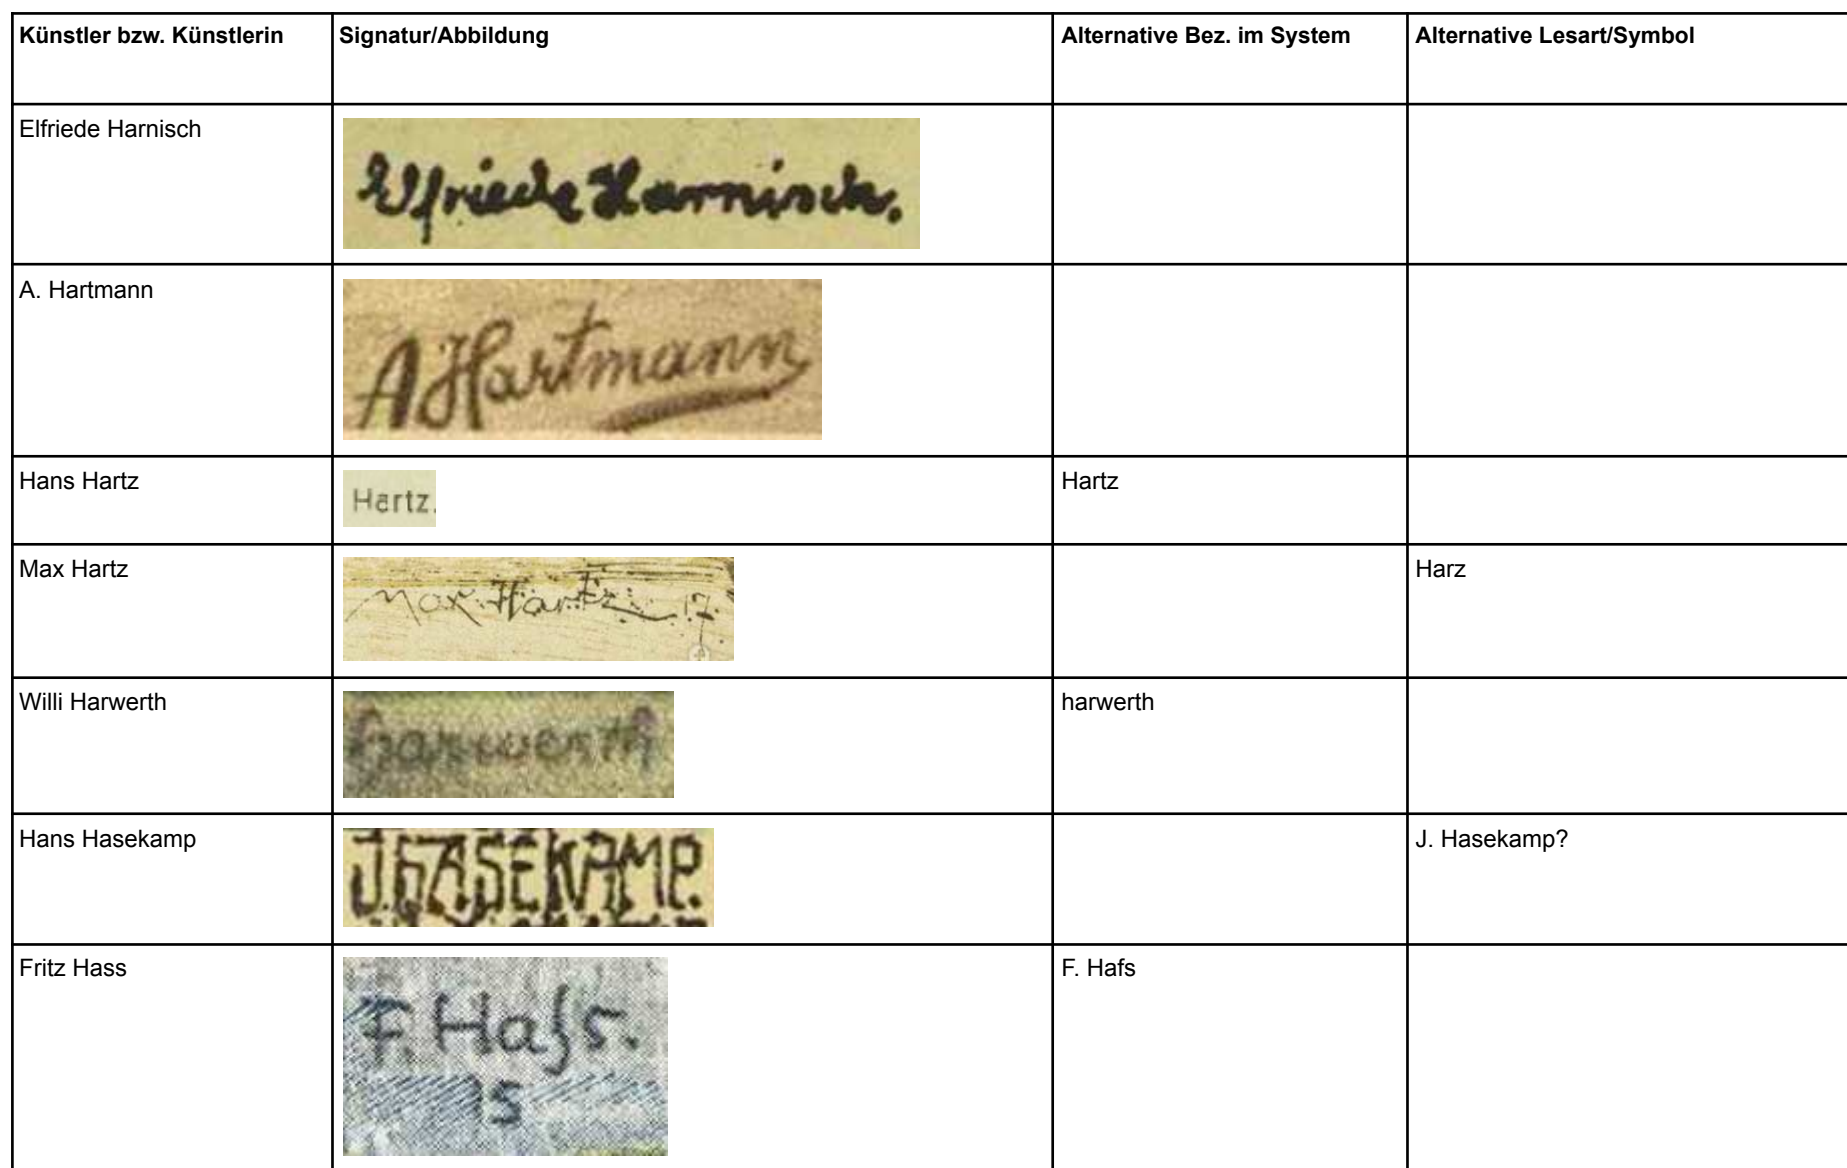 Künstler bzw. Künstlerin Signatur/Abbildung Alternative Bez. im System Alternative Lesart/Symbol
Elfriede Harnisch
Elfriede Harnisch.
A. Hartmann
A Hartmann
Hans Hartz
Hartz.
Hartz
Max Hartz
Max Hartz 17.
Harz
Willi Harwerth
harwerth
harwerth
Hans Hasekamp
J. HASEKAMP.
J. Hasekamp?
Fritz Hass
F. Hafs.
15
F. Hafs